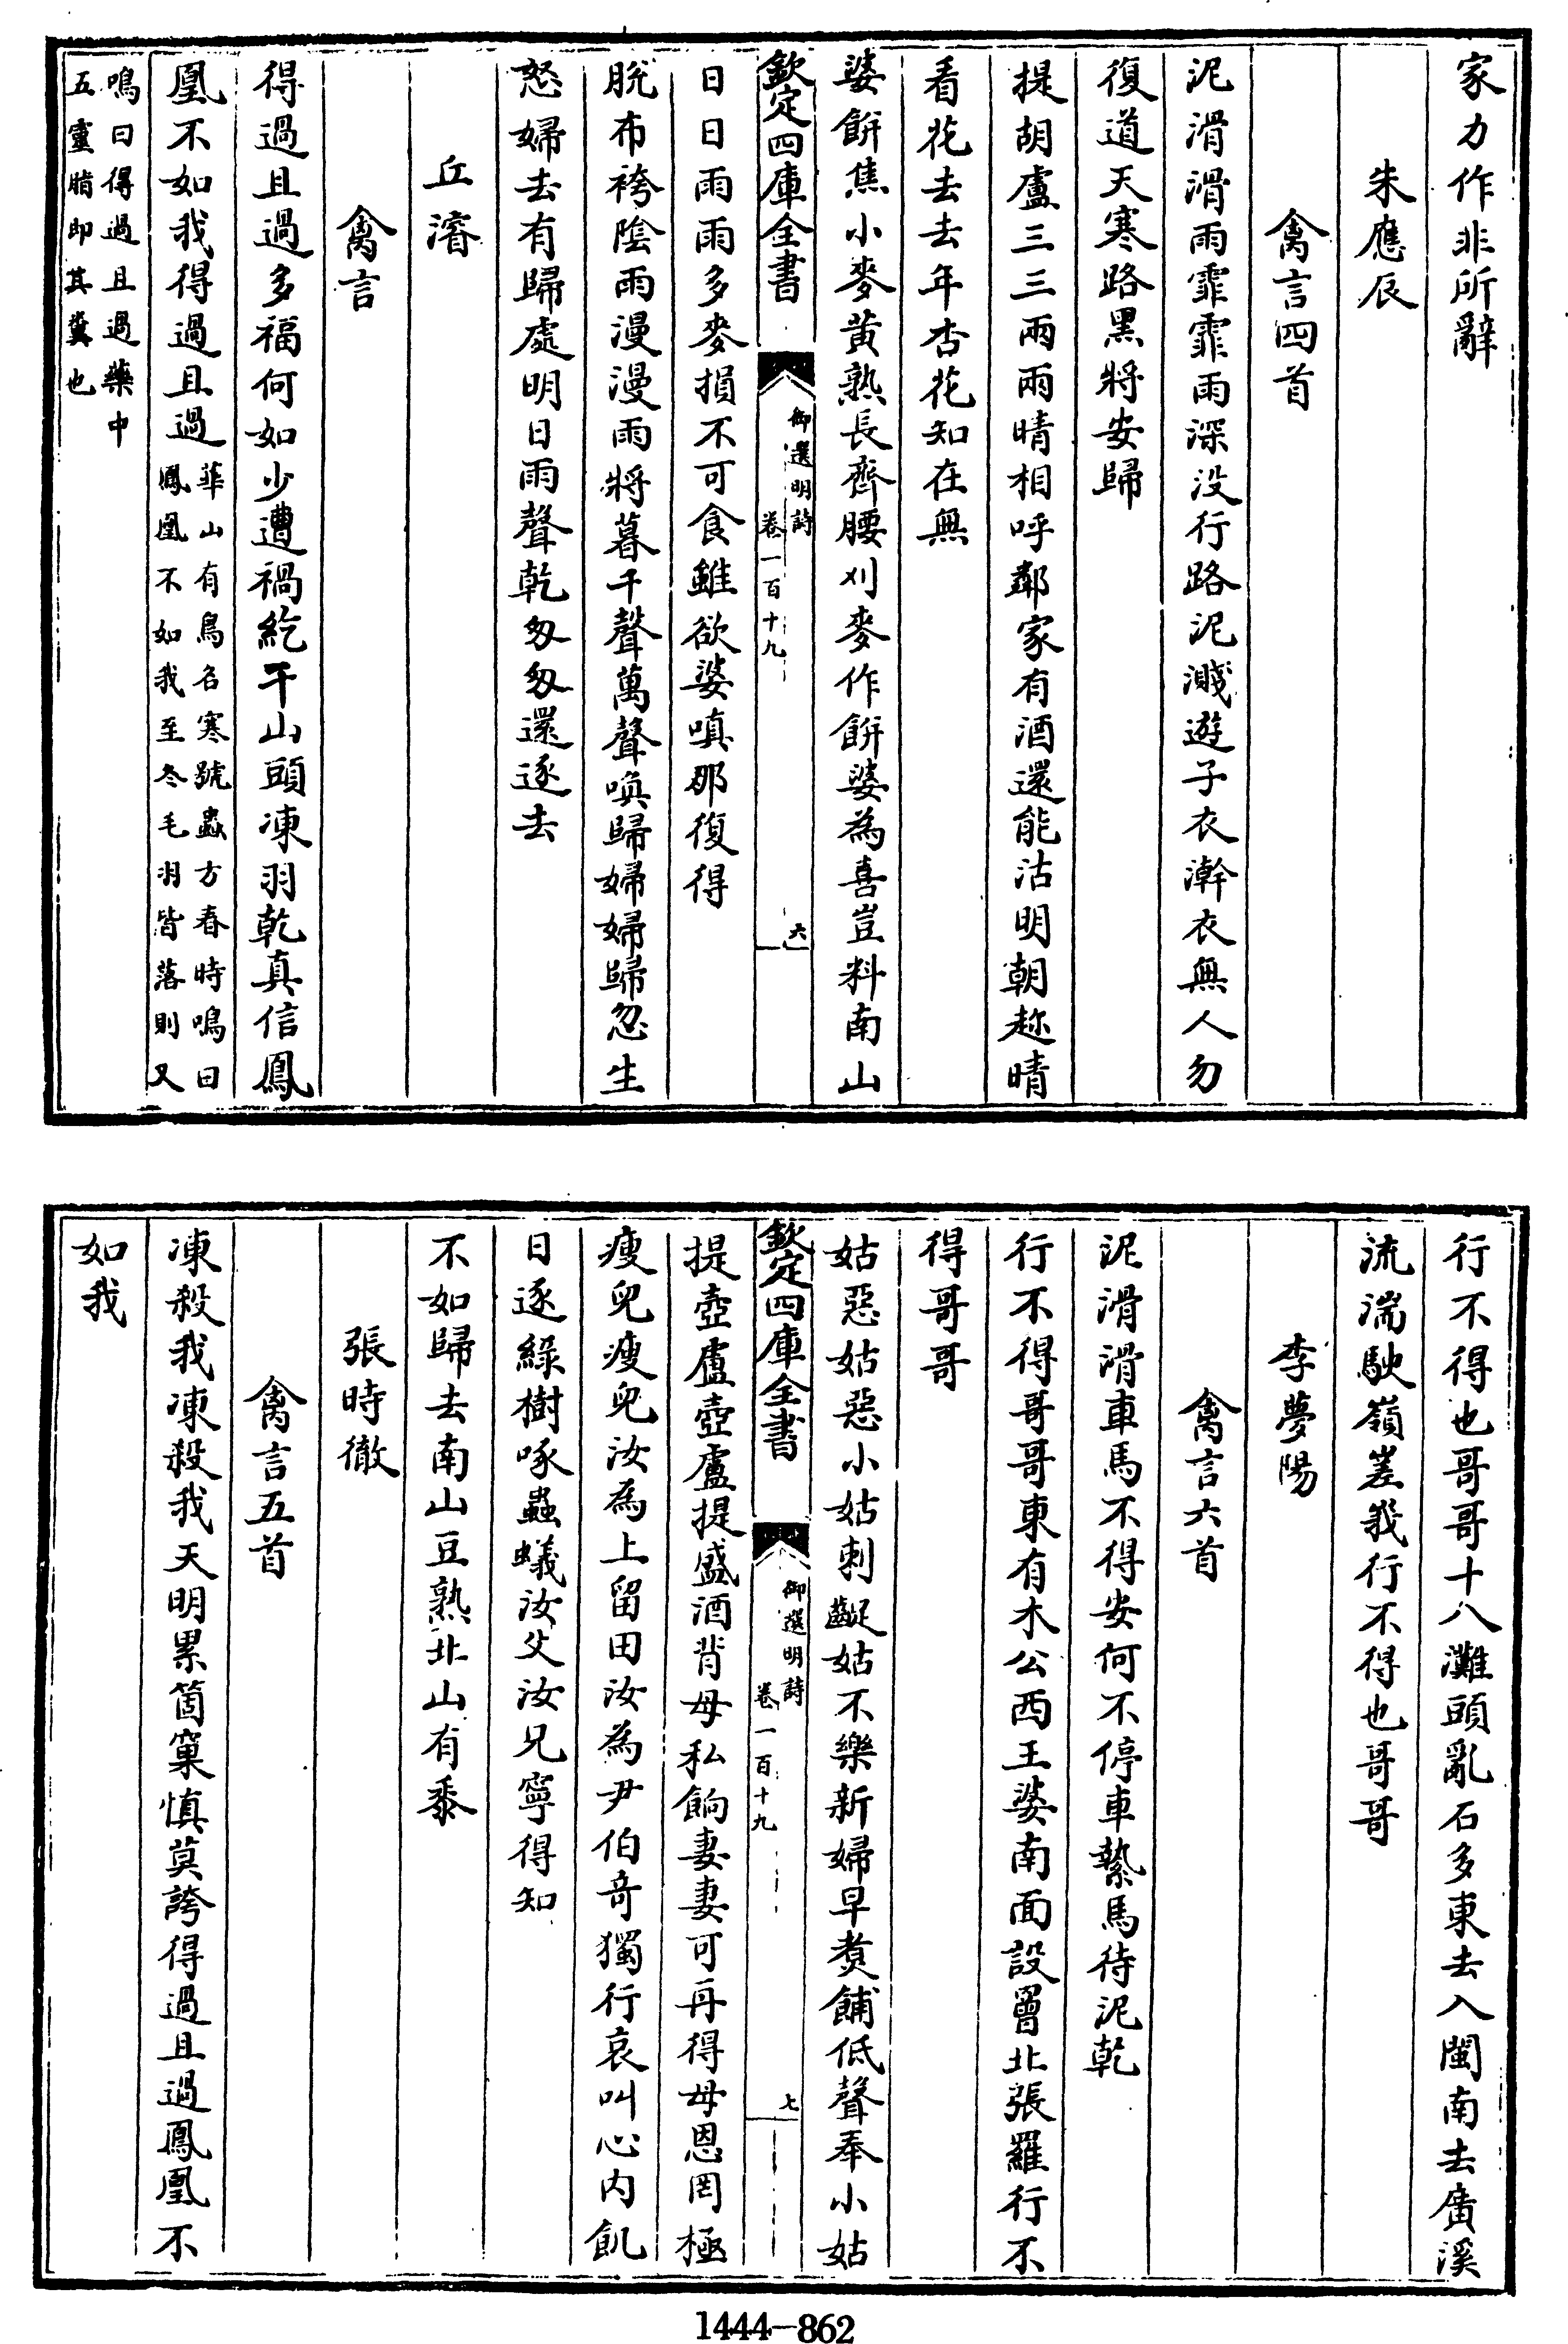 家力作非所辭
朱應辰
禽言四首
泥滑滑雨霏霏雨深没行路泥濺遊子衣澣衣無人勿
復道天寒路黑將安歸
提胡盧三三兩兩晴相呼鄰家有酒還能沽明朝趂晴
看花去去年杏花知在無
婆餅焦小麥黄熟長齊腰刈麥作餅婆為喜豈料南山
欽定四庫全書
御選明詩
卷一百十九
六
日日雨雨多麥損不可食雖欲婆嗔那復得
脱布袴陰雨漫漫雨將暮千聲萬聲喚歸婦婦歸忽生
怒婦去有歸處明日雨聲乾匆匆還逐去
丘濬
禽言
得過且過多福何如少遭禍紇干山頭凍羽乾真信鳳
凰不如我得過且過華山有鳥名寒號蟲方春時鳴曰
鳳凰不如我至冬毛羽皆落則又
鳴曰得過且過藥中
五靈脂即其糞也
行不得也哥哥十八灘頭亂石多東去入閩南去廣溪
流湍駛嶺嵳峩行不得也哥哥
李夢陽
禽言六首
泥滑滑車馬不得安何不停車縶馬待泥乾
行不得哥哥東有木公西王婆南面設罾北張羅行不
得哥哥
姑惡姑惡小姑刺齪姑不樂新婦早煑餔低聲奉小姑
欽定四庫全書
御選明詩
卷一百十九
七
提壺盧壺盧提盛酒背母私餉妻妻可再得母恩罔極
瘦兒瘦兒汝為上留田汝為尹伯奇獨行哀叫心内飢
日逐緑樹啄蟲蟻汝父汝兄寧得知
不如歸去南山豆熟北山有黍
張時徹
禽言五首
凍殺我凍殺我天明累箇窠慎莫誇得過且過鳳凰不
如我
1444—862